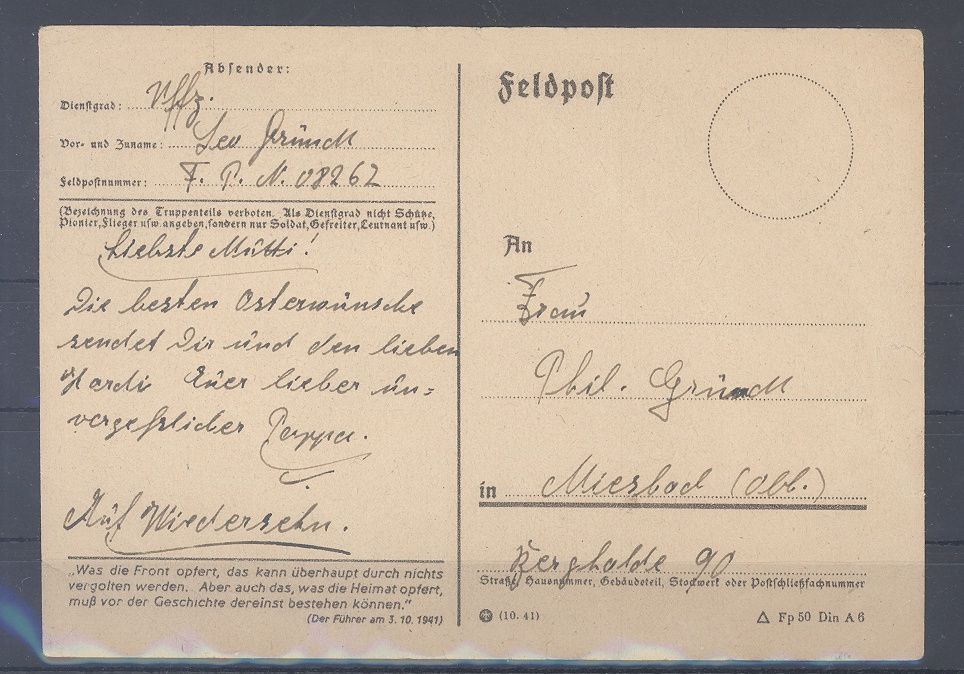 Absender:
Dienstgrad: Uffz.
Vor- und Zuname: Leo Gründl
Feldpostnummer: F. P. N. 08262
(Bezeichnung des Truppenteils verboten. Als Dienstgrad nicht Schütze,
Pionier, Flieger usw. angeben, sondern nur Soldat, Gefreiter, Leutnant usw.)
Liebste Mutti!
Die besten Osterwünsche
sendet Dir und den lieben
Hardi Euer lieber un-
vergeßlicher Pappa.
Auf Wiedersehn.
„Was die Front opfert, das kann überhaupt durch nichts
vergolten werden. Aber auch das, was die Heimat opfert,
muß vor der Geschichte dereinst bestehen können.“
(Der Führer am 3. 10. 1941)
Feldpost
An
Frau
Phil. Gründl
in Miesbach (Obb.)
Berghalde 90
Straße, Hausnummer, Gebäudeteil, Stockwerk oder Postschließfachnummer
(10. 41)
Fp 50 Din A 6